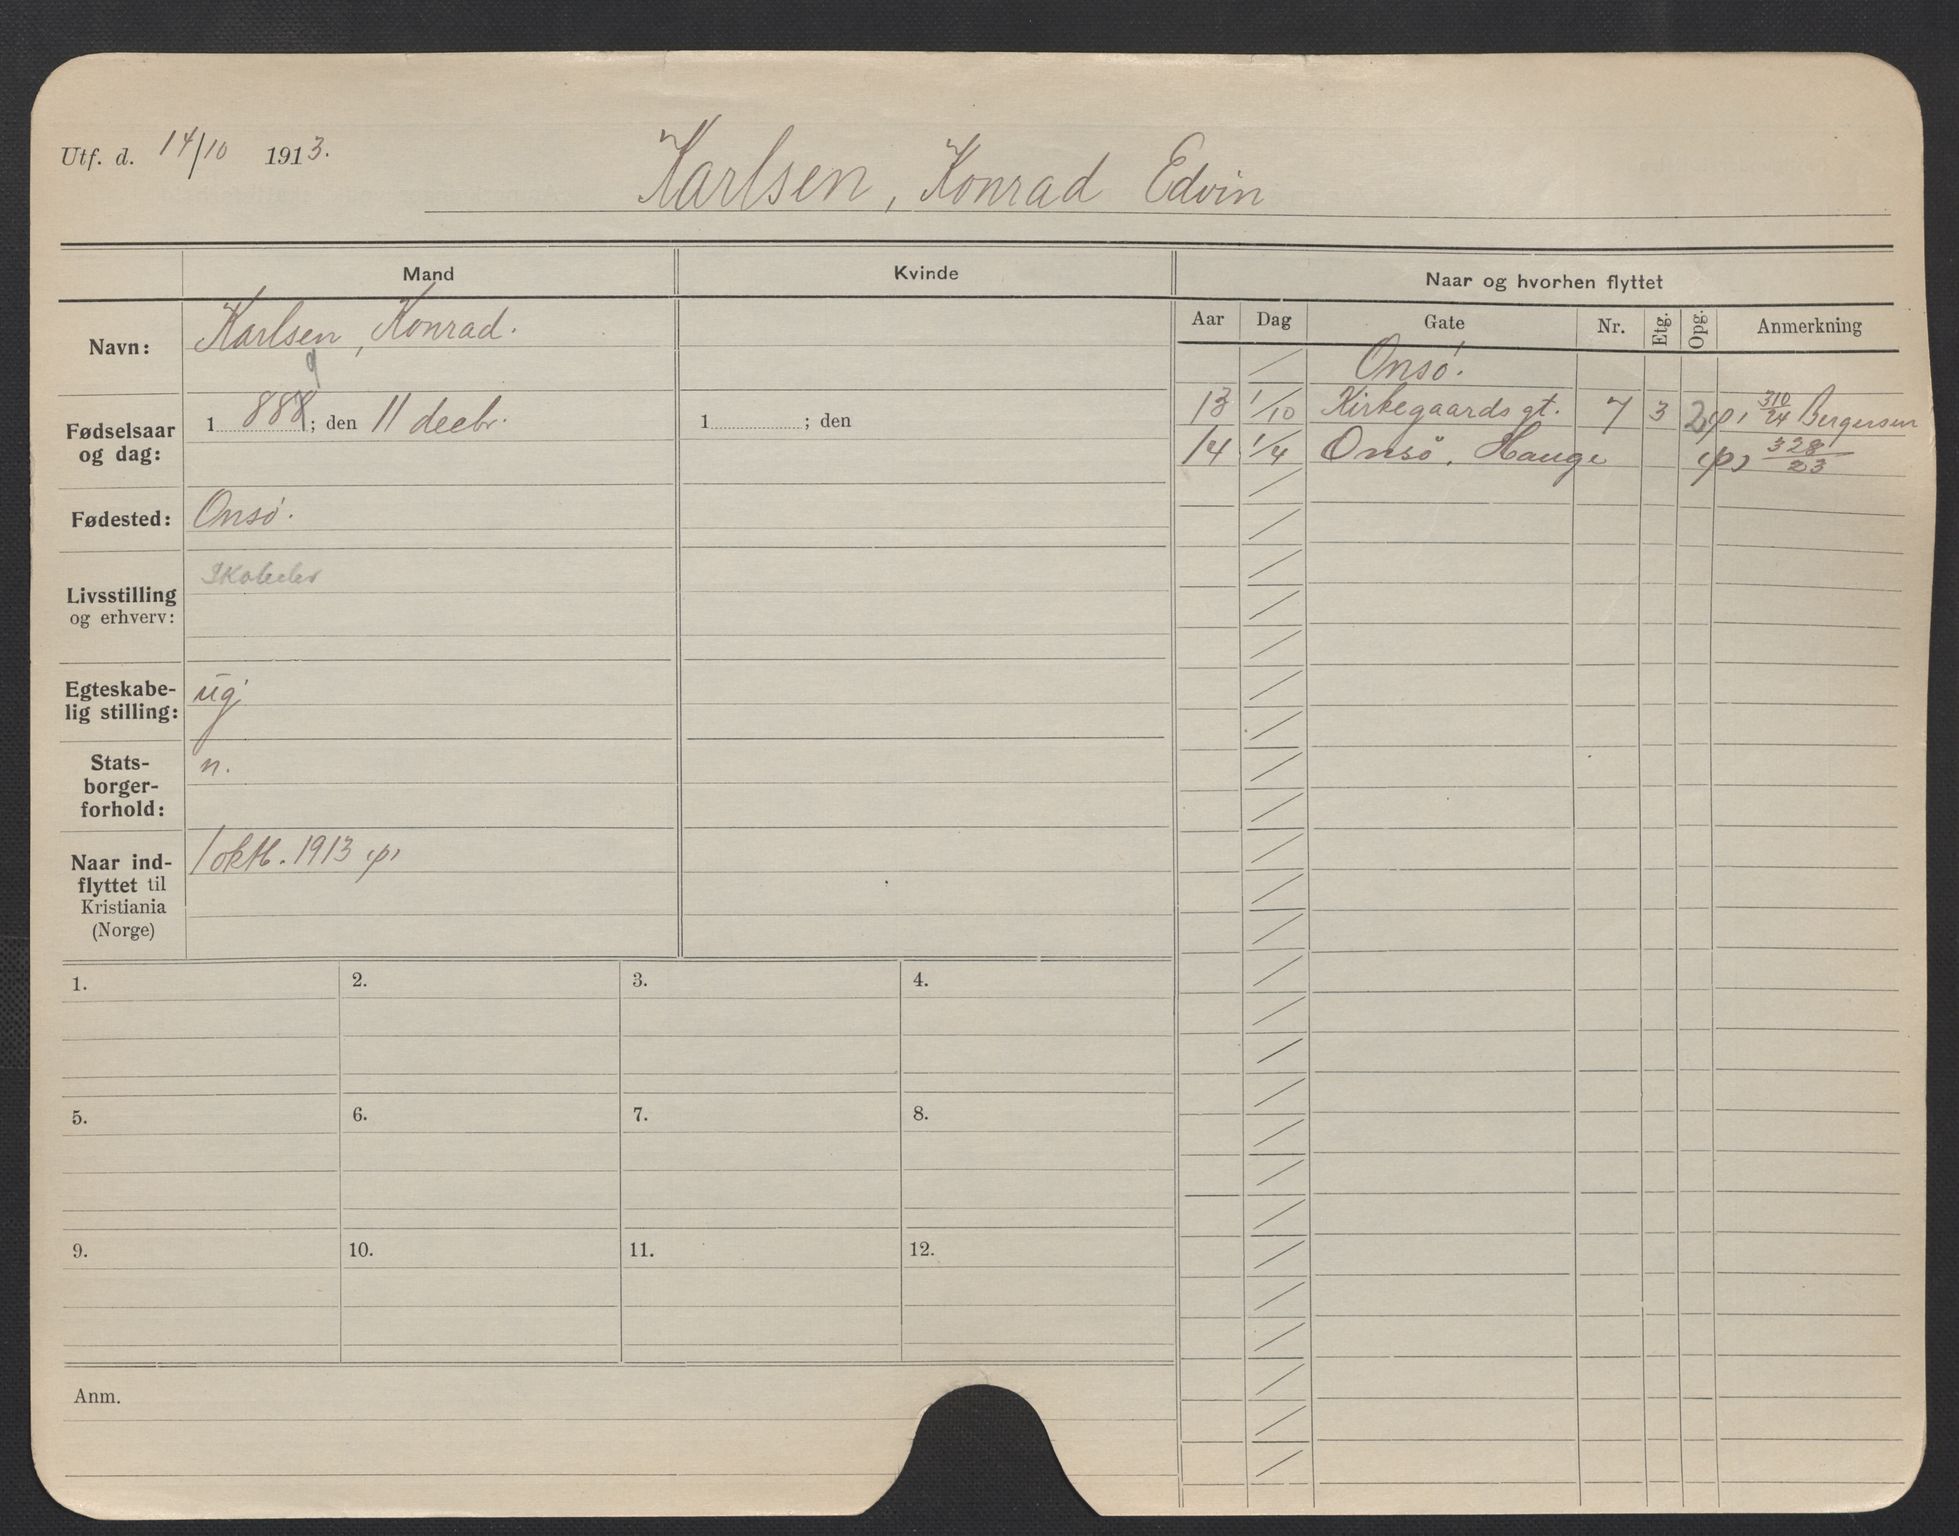 Utf. d. 14/10 1913.
Karlsen, Konrad Edvin
Mand
Kvinde
Naar og hvorhen flyttet
Navn:
Karlsen, Konrad.
9
Fødselsaar
og dag:
1888; den 11 decbr.
1 ; den
Fødested:
Onsö.
Livsstilling
og erhverv:
Skoleelev
Egteskabe-
lig stilling:
ug
Stats-
borger-
forhold:
n.
Naar ind-
flyttet til
Kristiania
(Norge)
1 oktb. 1913 (p)
Aar Dag Gate Nr. Etg. Opg. Anmerkning
Onsö.
13 1/10 Kirkegaards gt. 7 3 2 (p) 310/24 Bergersen
14 1/4 Onsö, Hauge (p) 328/23
1. 2. 3. 4.
5. 6. 7. 8.
9. 10. 11. 12.
Anm.